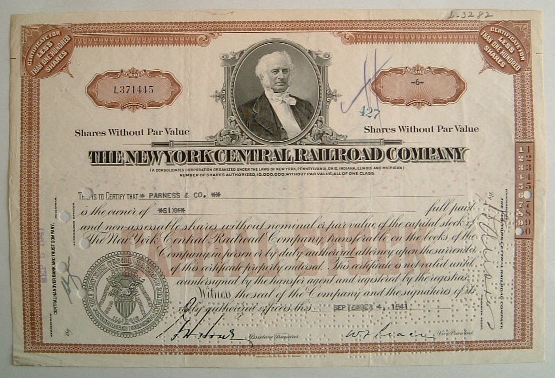 S-3282
CERTIFICATE FOR LESS THAN ONE HUNDRED SHARES
CERTIFICATE FOR LESS THAN ONE HUNDRED SHARES
L371415
-6-
127
Shares Without Par Value
Shares Without Par Value
THE NEW YORK CENTRAL RAILROAD COMPANY
(A CONSOLIDATED CORPORATION ORGANIZED UNDER THE LAWS OF NEW YORK, PENNSYLVANIA, OHIO, INDIANA, ILLINOIS AND MICHIGAN)
NUMBER OF SHARES AUTHORIZED, 10,000,000, WITHOUT PAR VALUE, ALL OF ONE CLASS.
This is to Certify that * PARNESS & CO. **
is the owner of *SIX* full paid
and non-assessable shares without nominal or par value of the capital stock of
The New York Central Railroad Company, transferable on the books of the
Company in person or by duly authorized attorney upon the surrender
of this certificate properly endorsed. This certificate is not valid until
countersigned by the transfer agent and registered by the registrar.
Witness the seal of the Company and the signatures of its
duly authorized officers this SEPTEMBER 4, 1941
Assistant Secretary
Vice President